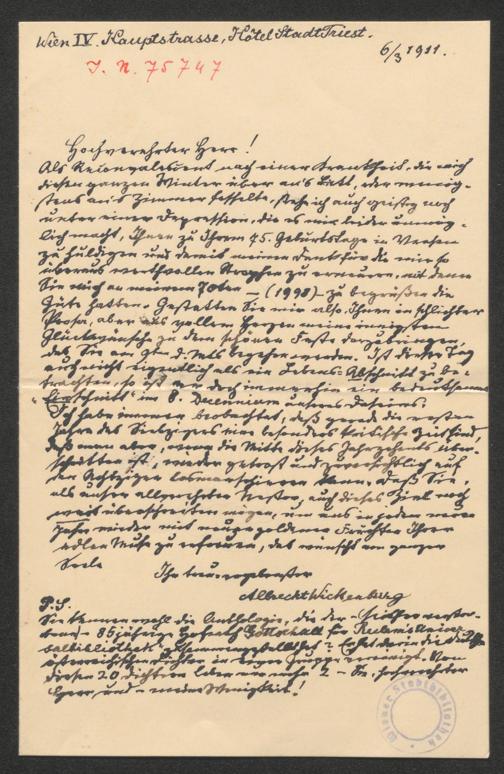 Wien IV. Hauptstrasse, Hôtel Stadt Triest.
6/3 1911.
J. N. 75747
Hochverehrter Herr!
Als Reconvalescent nach einer Krankheit, die mich
diesen ganzen Winter über an's Bett, oder wenig-
stens an's Zimmer fesselte, stehe ich auch geistig noch
unter einer Depression, die es mir leider unmög-
lich macht, Ihnen zu Ihrem 75. Geburtstage in Versen
zu huldigen und damit meinen Dank für die mir so
überaus werthvollen Strophen zu erneuern, mit denen
Sie mich an meinem 70ten – (1908) – zu begrüßen die
Güte hatten. Gestatten Sie mir also, Ihnen in schlichter
Prosa, aber aus vollem Herzen meine innigsten
Glückwünsche zu dem schönen Feste darzubringen,
das Sie am 9ten d. Mts begehen werden. Ist dieser Tag
auch nicht eigentlich als ein Lebens-Abschnitt zu be-
trachten, so ist er doch immerhin ein bedeutsamer
"Einschnitt" im 8. Decennium unseres Daseins.
Ich habe immer beobachtet, daß gerade die ersten
Jahre des Siebzigers eine besonders kritische Zeit sind,
daß man aber, wenn die Mitte dieses Jahrzehents über-
schritten ist, wieder getrost und zuversichtlich auf
den Achtziger losmarschieren kann. Daß Sie,
als unser allverehrter Nestor, auch dieses Ziel noch
weit überschreiten mögen, um uns in jedem neuen
Jahr wieder mit neuen goldenen Früchten Ihrer
edlen Muse zu erfreuen, das wünscht von ganzer
Seele
Ihr treu ergebenster
Albrecht Wickenburg
P. S.
Sie kennen wohl die Anthologie, die der
85 jährige Hofrath Gottschall für Reclam's Univer-
salbibliothek
österreichischen Dichter in einer Gruppe vereinigt. Von
diesen 20 Dichtern leben nur mehr 2 – Sie, hochverehrter
Herr und – meine Wenigkeit!
Wiener Stadtbibliothek